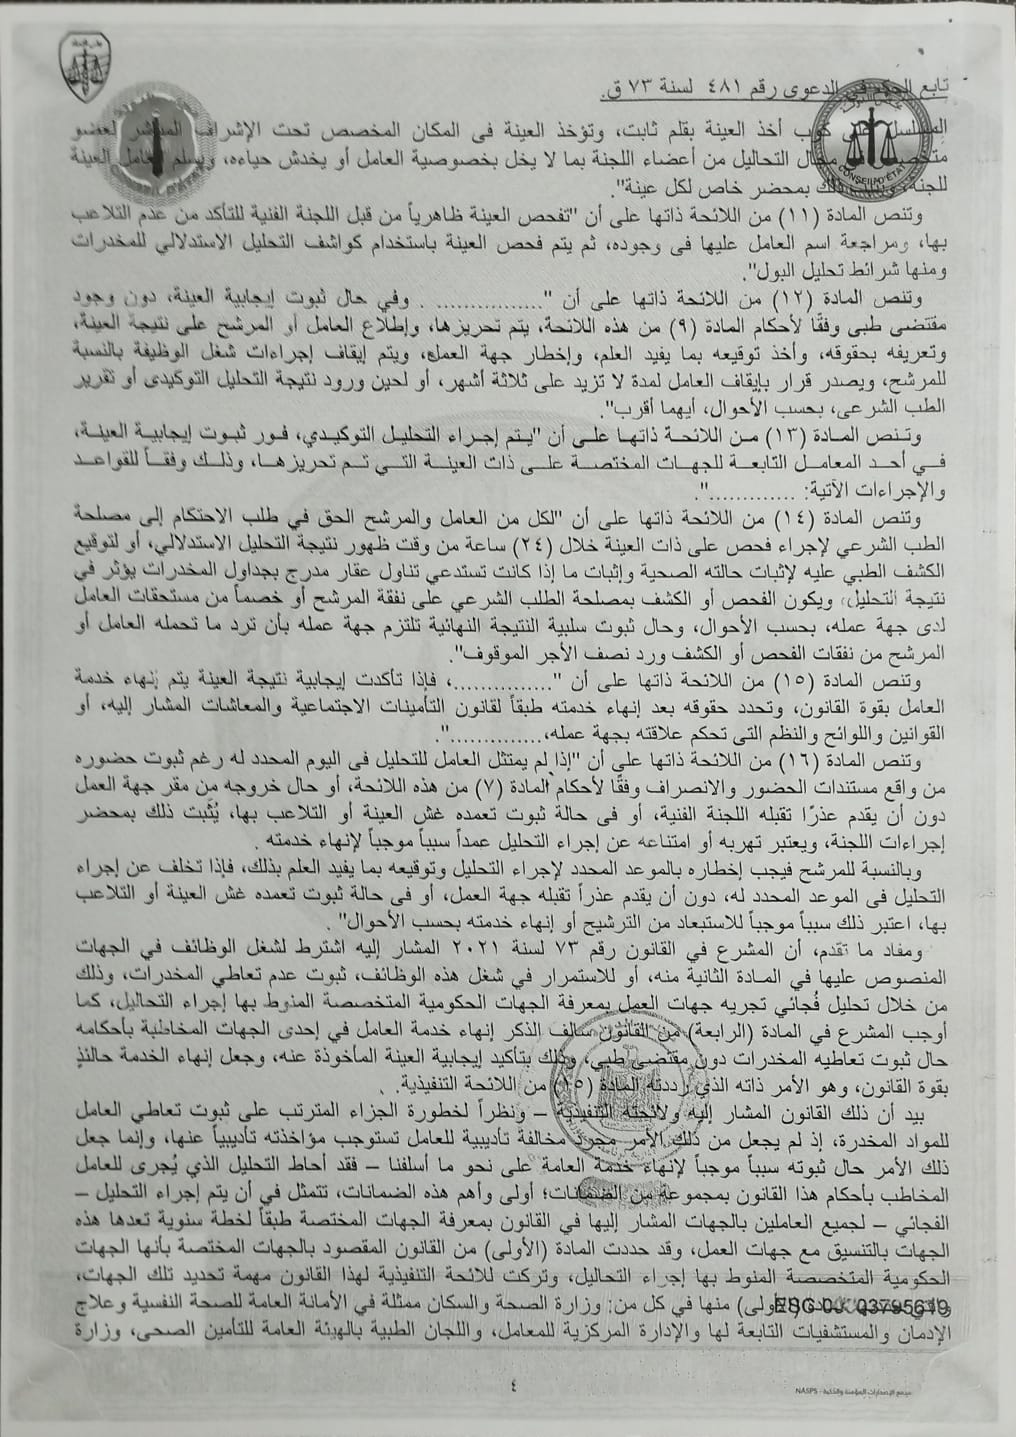 تابع الحكم في الدعوى رقم ٤٨١ لسنة ٧٣ ق.
CONSEIL D'ETAT
المسلسل على كوب أخذ العينة بقلم ثابت، وتؤخذ العينة فى المكان المخصص تحت الإشراف المباشر لعضو
متخصص فى مجال التحاليل من أعضاء اللجنة بما لا يخل بخصوصية العامل أو يخدش حياءه، ويسلم العامل العينة
للجنة، ذلك بمحضر خاص لكل عينة".
وتنص المادة (١١) من اللائحة ذاتها على أن "تفحص العينة ظاهرياً من قبل اللجنة الفنية للتأكد من عدم التلاعب
بها، ومراجعة اسم العامل عليها فى وجوده، ثم يتم فحص العينة باستخدام كواشف التحليل الاستدلالي للمخدرات
ومنها شرائط تحليل البول".
وتنص المادة (١٢) من اللائحة ذاتها على أن "................ . وفي حال ثبوت إيجابية العينة، دون وجود
مقتضى طبى وفقًا لأحكام المادة (٩) من هذه اللائحة، يتم تحريزها، وإطلاع العامل أو المرشح على نتيجة العينة،
وتعريفه بحقوقه، وأخذ توقيعه بما يفيد العلم، وإخطار جهة العمل، ويتم إيقاف إجراءات شغل الوظيفة بالنسبة
للمرشح، ويصدر قرار بإيقاف العامل لمدة لا تزيد على ثلاثة أشهر، أو لحين ورود نتيجة التحليل التوكيدى أو تقرير
الطب الشرعى، بحسب الأحوال، أيهما أقرب".
وتنص المادة (١٣) من اللائحة ذاتها على أن "يتم إجراء التحليل التوكيدي، فور ثبوت إيجابية العينة،
في أحد المعامل التابعة للجهات المختصة على ذات العينة التي تم تحريزها، وذلك وفقاً للقواعد
والإجراءات الآتية: .............".
وتنص المادة (١٤) من اللائحة ذاتها على أن "لكل من العامل والمرشح الحق في طلب الاحتكام إلى مصلحة
الطب الشرعي لإجراء فحص على ذات العينة خلال (٢٤) ساعة من وقت ظهور نتيجة التحليل الاستدلالي، أو لتوقيع
الكشف الطبي عليه لإثبات حالته الصحية وإثبات ما إذا كانت تستدعي تناول عقار مدرج بجداول المخدرات يؤثر في
نتيجة التحليل، ويكون الفحص أو الكشف بمصلحة الطلب الشرعي على نفقة المرشح أو خصماً من مستحقات العامل
لدى جهة عمله، بحسب الأحوال، وحال ثبوت سلبية النتيجة النهائية تلتزم جهة عمله بأن ترد ما تحمله العامل أو
المرشح من نفقات الفحص أو الكشف ورد نصف الأجر الموقوف".
وتنص المادة (١٥) من اللائحة ذاتها على أن "...............، فإذا تأكدت إيجابية نتيجة العينة يتم إنهاء خدمة
العامل بقوة القانون، وتحدد حقوقه بعد إنهاء خدمته طبقاً لقانون التأمينات الاجتماعية والمعاشات المشار إليه، أو
القوانين واللوائح والنظم التى تحكم علاقته بجهة عمله،.............".
وتنص المادة (١٦) من اللائحة ذاتها على أن "إذا لم يمتثل العامل للتحليل فى اليوم المحدد له رغم ثبوت حضوره
من واقع مستندات الحضور والانصراف وفقًا لأحكام المادة (٧) من هذه اللائحة، أو حال خروجه من مقر جهة العمل
دون أن يقدم عذرًا تقبله اللجنة الفنية، أو فى حالة ثبوت تعمده غش العينة أو التلاعب بها، يُثبت ذلك بمحضر
إجراءات اللجنة، ويعتبر تهربه أو امتناعه عن إجراء التحليل عمداً سبباً موجباً لإنهاء خدمته .
وبالنسبة للمرشح فيجب إخطاره بالموعد المحدد لإجراء التحليل وتوقيعه بما يفيد العلم بذلك، فإذا تخلف عن إجراء
التحليل فى الموعد المحدد له، دون أن يقدم عذراً تقبله جهة العمل، أو فى حالة ثبوت تعمده غش العينة أو التلاعب
بها، اعتبر ذلك سبباً موجباً للاستبعاد من الترشيح أو إنهاء خدمته بحسب الأحوال" .
ومفاد ما تقدم، أن المشرع في القانون رقم ٧٣ لسنة ٢٠٢١ المشار إليه اشترط لشغل الوظائف في الجهات
المنصوص عليها في المادة الثانية منه، أو للاستمرار في شغل هذه الوظائف، ثبوت عدم تعاطي المخدرات، وذلك
من خلال تحليل فُجائي تجريه جهات العمل بمعرفة الجهات الحكومية المتخصصة المنوط بها إجراء التحاليل، كما
أوجب المشرع في المادة (الرابعة) من القانون سالف الذكر إنهاء خدمة العامل في إحدى الجهات المخاطبة بأحكامه
حال ثبوت تعاطيه المخدرات دون مقتضى طبي، وذلك بتأكيد إيجابية العينة المأخوذة عنه، وجعل إنهاء الخدمة حالئذٍ
بقوة القانون، وهو الأمر ذاته الذي رددته المادة (١٥) من اللائحة التنفيذية.
بيد أن ذلك القانون المشار إليه ولائحته التنفيذية – ونظراً لخطورة الجزاء المترتب على ثبوت تعاطي العامل
للمواد المخدرة، إذ لم يجعل من ذلك الأمر مجرد مخالفة تأديبية للعامل تستوجب مؤاخذته تأديبياً عنها، وإنما جعل
ذلك الأمر حال ثبوته سبباً موجباً لإنهاء خدمة العامة على نحو ما أسلفنا – فقد أحاط التحليل الذي يُجرى للعامل
المخاطب بأحكام هذا القانون بمجموعة من الضمانات؛ أولى وأهم هذه الضمانات، تتمثل في أن يتم إجراء التحليل –
الفجائي – لجميع العاملين بالجهات المشار إليها في القانون بمعرفة الجهات المختصة طبقاً لخطة سنوية تعدها هذه
الجهات بالتنسيق مع جهات العمل، وقد حددت المادة (الأولى) من القانون المقصود بالجهات المختصة بأنها الجهات
الحكومية المتخصصة المنوط بها إجراء التحاليل، وتركت للائحة التنفيذية لهذا القانون مهمة تحديد تلك الجهات،
(الأولى) منها في كل من: وزارة الصحة والسكان ممثلة في الأمانة العامة للصحة النفسية وعلاج
ESG 0JX 03795619
الإدمان والمستشفيات التابعة لها والإدارة المركزية للمعامل، واللجان الطبية بالهيئة العامة للتأمين الصحى، وزارة
٤
مجمع الإصدارات المؤمنة والذكية - NASPS